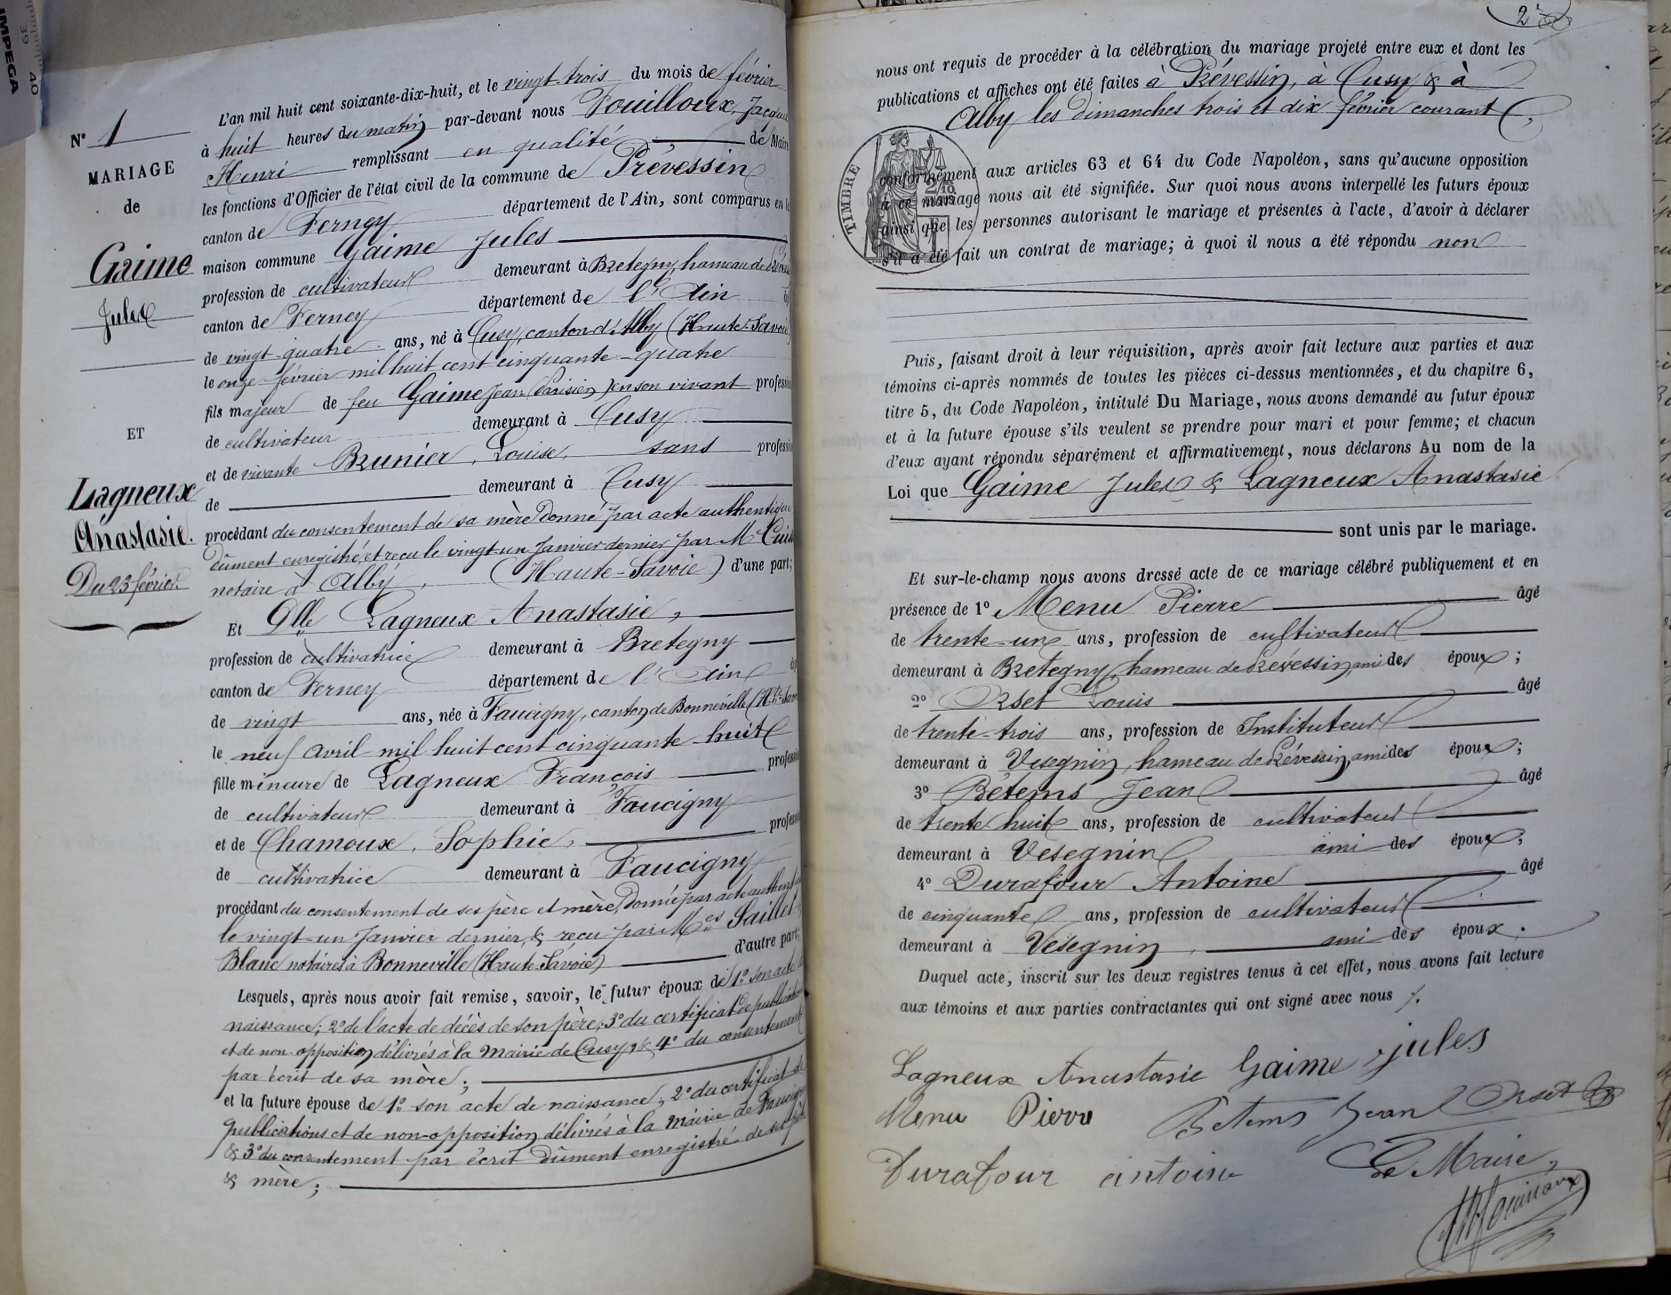 IMPEGA
39
40
N° 1
MARIAGE
de
Gaime
Jules
ET
Lagneux
Anastasie.
Du 23 février
L'an mil huit cent soixante-dix-huit, et le vingt-trois du mois de février
à huit heures du matin par-devant nous Fouilloux, Jacques
Henri remplissant en qualité de Maire
les fonctions d'Officier de l'état civil de la commune de Prévessin
canton de Ferney département de l'Ain, sont comparus en la
maison commune Gaime Jules
profession de cultivateur demeurant à Bretegny, hameau de Prévessin
canton de Ferney département de l'Ain
de vingt-quatre ans, né à Cusy, canton d'Alby (Haute-Savoie)
le onze février mil huit cent cinquante-quatre
fils majeur de feu Gaime Jean Parisien en son vivant profession
de cultivateur demeurant à Cusy
et de vivante Brunier, Louise, sans profession
de demeurant à Cusy
procédant du consentement de sa mère donné par acte authentique
dûment enregistré, et reçu le vingt-un Janvier dernier par Me
notaire à Alby, (Haute-Savoie) d'une part;
Et Dlle Lagneux Anastasie,
profession de cultivatrice demeurant à Bretegny
canton de Ferney département de l'Ain
de vingt ans, née à Faucigny, canton de Bonneville (Hte-Savoie
le neuf avril mil huit cent cinquante-huit
fille mineure de Lagneux François profession
de cultivateur demeurant à Faucigny
et de Chamoux, Sophie, profession
de cultivatrice demeurant à Faucigny
procédant du consentement de ses père et mère, Donné par acte authent
le vingt-un Janvier dernier, & reçu par Mes Saillet
Blanc notaires à Bonneville (Haute-Savoie) d'autre part;
Lesquels, après nous avoir fait remise, savoir, le futur époux de 1° son acte de
naissance; 2° de l'acte de décès de son père; 3° du certificat de publications
et de non-opposition délivrés à la Mairie de Cusy, & 4° du consentement
par écrit de sa mère;
et la future épouse de 1° son acte de naissance, 2° du certificat de
publications et de non-opposition délivrés à la mairie de Faucigny
& 3° du consentement par écrit dûment enregistré de ses père
& mère;
2
nous ont requis de procéder à la célébration du mariage projeté entre eux et dont les
publications et affiches ont été faites à Prévessin, à Cusy & à
Alby les dimanches trois et dix février courant,
TIMBRE
conformément aux articles 63 et 64 du Code Napoléon, sans qu'aucune opposition
à ce mariage nous ait été signifiée. Sur quoi nous avons interpellé les futurs époux
ainsi que les personnes autorisant le mariage et présentes à l'acte, d'avoir à déclarer
s'il a été fait un contrat de mariage; à quoi il nous a été répondu non
Puis, faisant droit à leur réquisition, après avoir fait lecture aux parties et aux
témoins ci-après nommés de toutes les pièces ci-dessus mentionnées, et du chapitre 6,
titre 5, du Code Napoléon, intitulé Du Mariage, nous avons demandé au futur époux
et à la future épouse s'ils veulent se prendre pour mari et pour femme; et chacun
d'eux ayant répondu séparément et affirmativement, nous déclarons Au nom de la
Loi que Gaime Jules & Lagneux Anastasie
sont unis par le mariage.
Et sur-le-champ nous avons dressé acte de ce mariage célébré publiquement et en
présence de 1° Menu Pierre âgé
de trente-un ans, profession de cultivateur
demeurant à Bretegny, hameau de Prévessin, ami des époux;
2° Orset Louis âgé
de trente-trois ans, profession de Instituteur
demeurant à Vesegnin, hameau de Prévessin, ami des époux;
3° Bétems Jean âgé
de trente huit ans, profession de cultivateur
demeurant à Vesegnin ami des époux;
4° Durafour Antoine âgé
de cinquante ans, profession de cultivateur
demeurant à Vesegnin, ami des époux.
Duquel acte, inscrit sur les deux registres tenus à cet effet, nous avons fait lecture
aux témoins et aux parties contractantes qui ont signé avec nous
Lagneux Anastasie Gaime jules
Menu Pierre Betems Jean Orset
Durafour antoine Le Maire,
Fouilloux